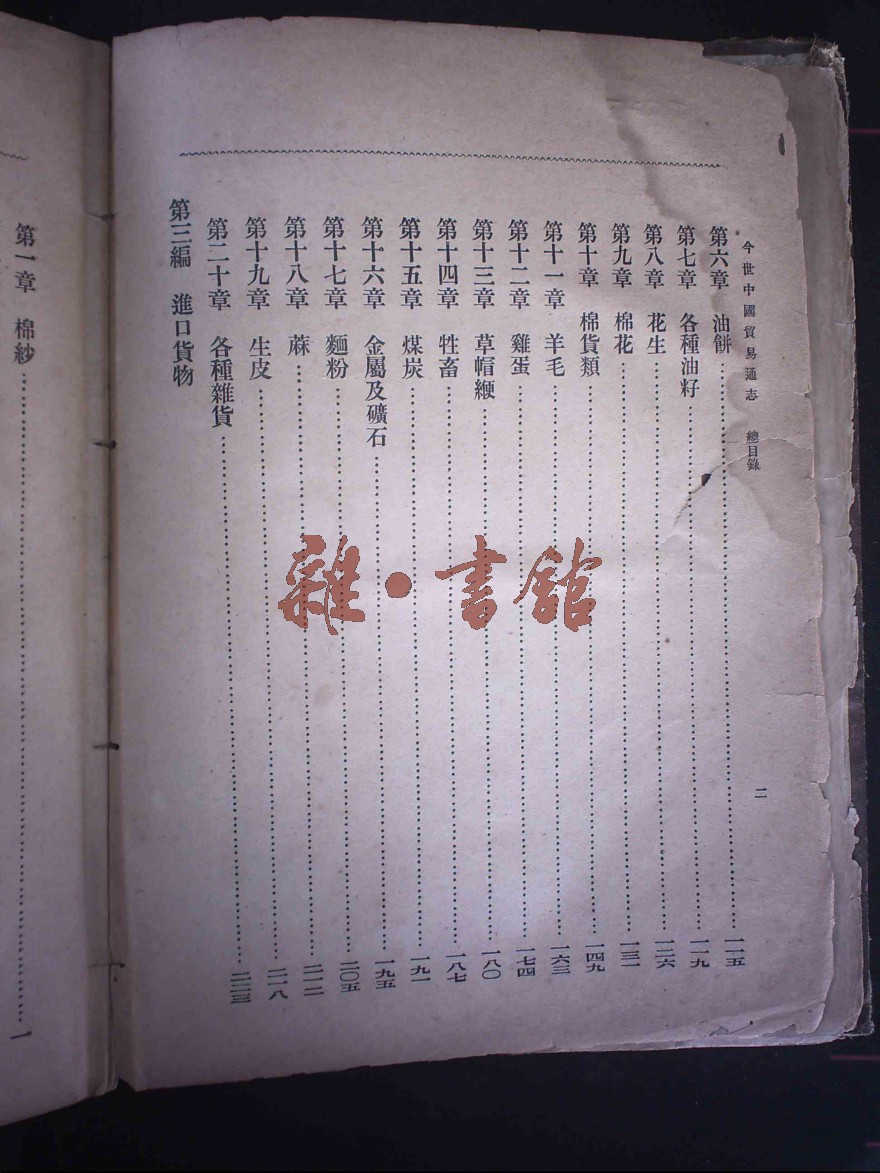 今世中國貿易通志 總目錄 二
第六章 油餅 一一五
第七章 各種油籽 一一九
第八章 花生 一二六
第九章 棉花 一三一
第十章 棉貨類 一四九
第十一章 羊毛 一六三
第十二章 雞蛋 一七四
第十三章 草帽緶 一八〇
第十四章 牲畜 一八七
第十五章 煤炭 一九一
第十六章 金屬及礦石 一九五
第十七章 麵粉 二〇五
第十八章 蔴 二一二
第十九章 生皮 二一八
第二十章 各種雜貨 二二三
第三編 進口貨物
第一章 棉紗 一
雜·書館